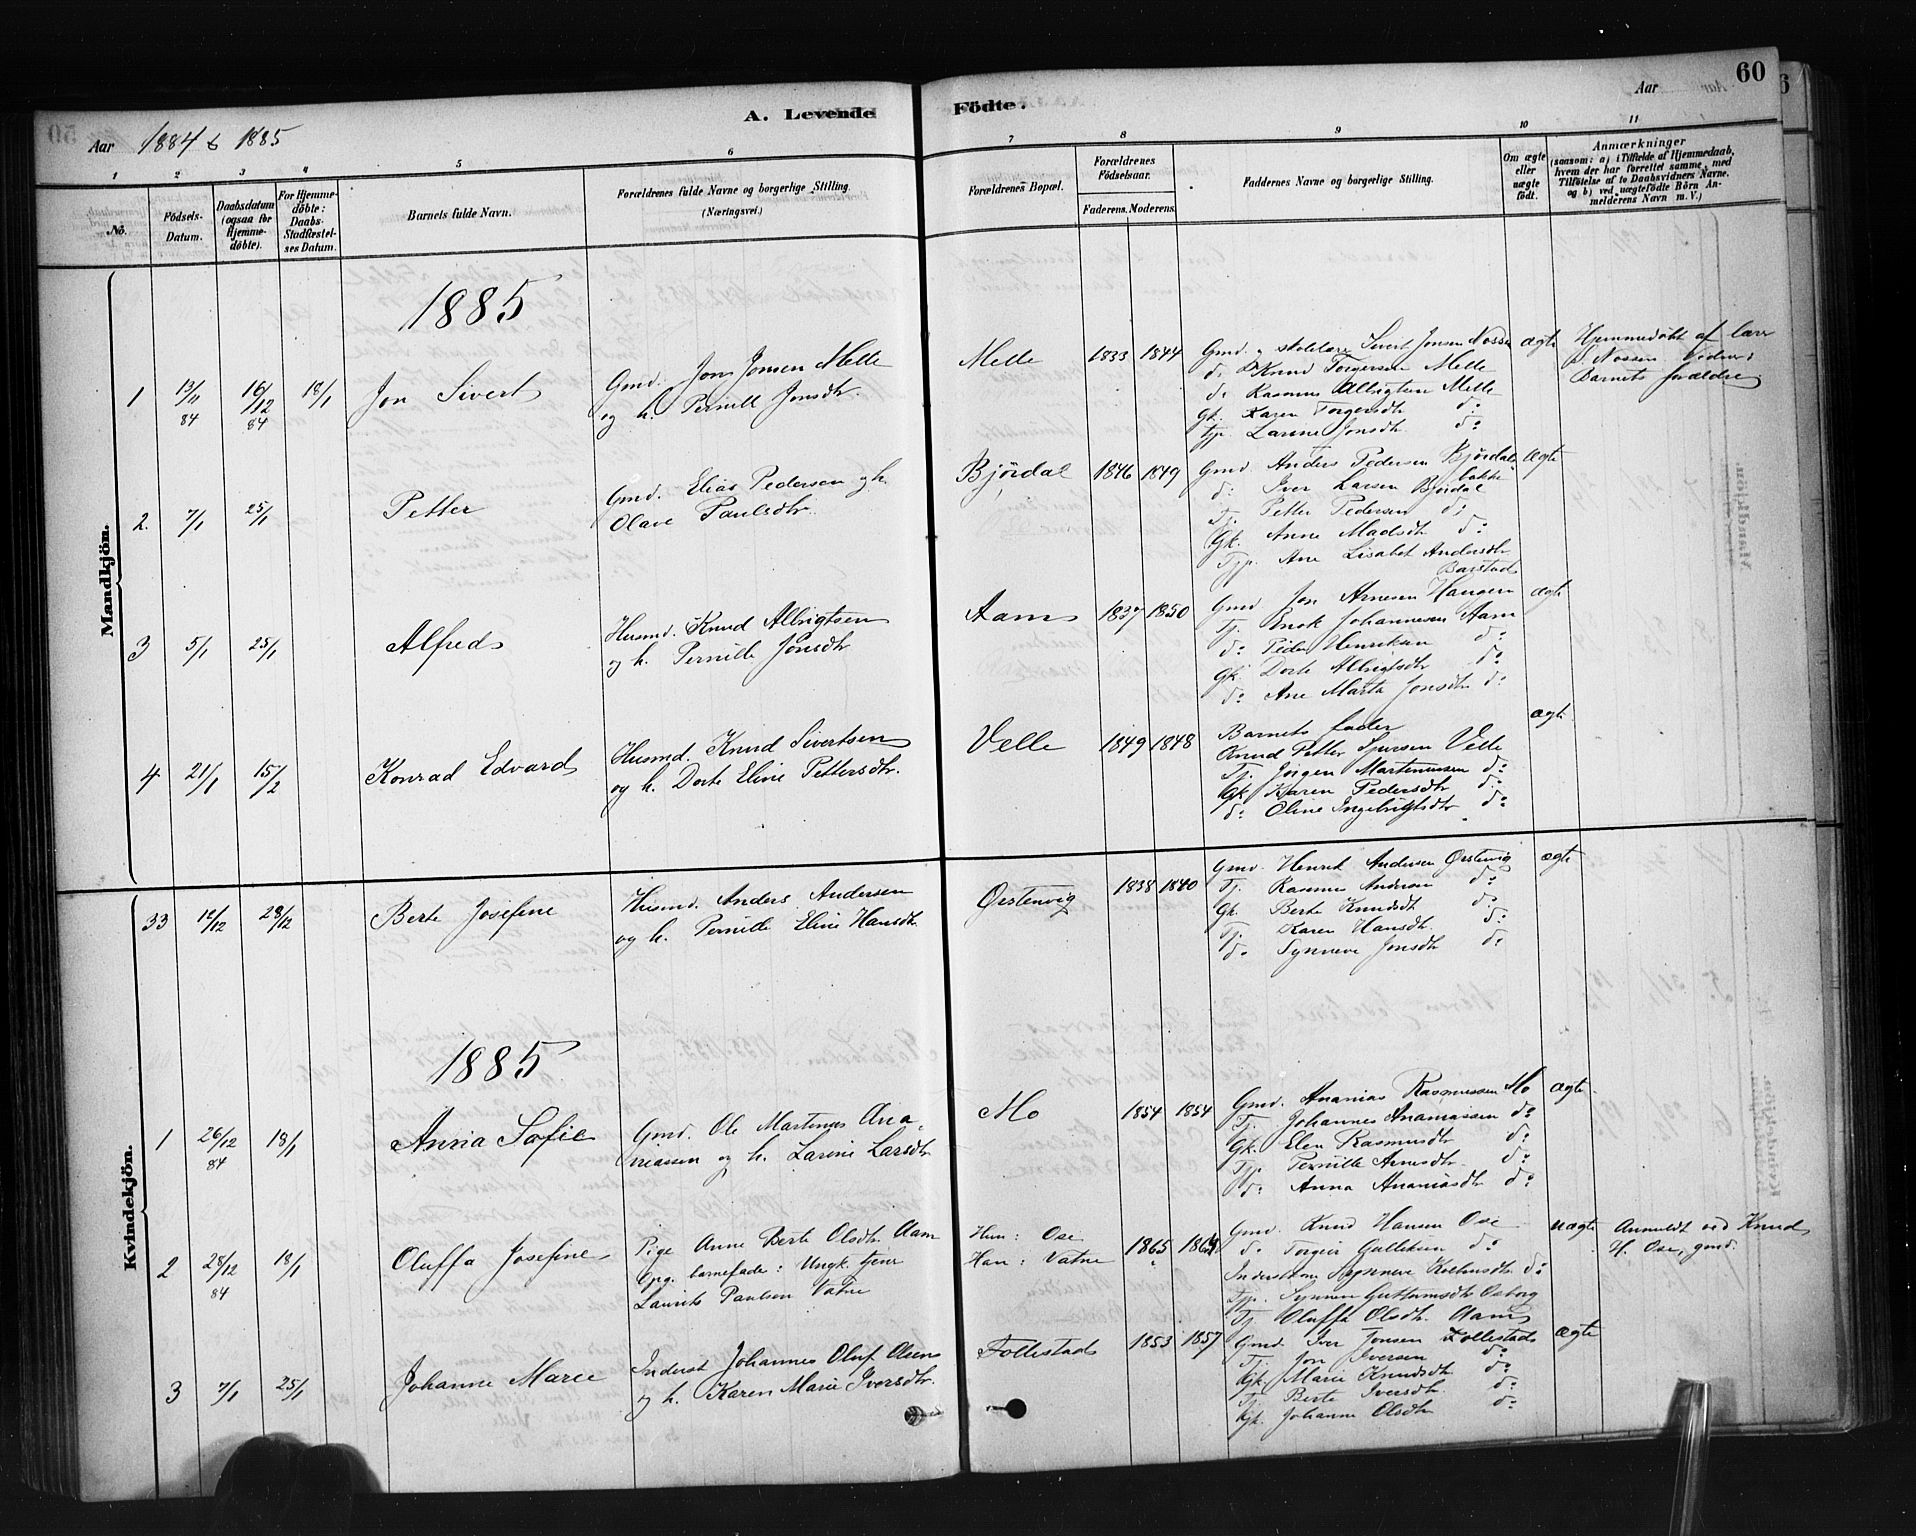 60
A. Levende Födte.
Aar 1884 & 1885
Aar
1 2 3 4 5 6 7 8 9 10 11
No.
Födsels-Datum.
Daabsdatum (ogsaa for Hjemme-döbte).
For Hjemme-döbte: Daabs-Stadfæstel-ses Datum.
Barnets fulde Navn.
Forældrenes fulde Navne og borgerlige Stilling. (Næringsvei.)
Forældrenes Bopæl.
Forældrenes Födselsaar.
Faderens. Moderens.
Faddernes Navne og borgerlige Stilling.
Om ægte eller uægte födt.
Anmærkninger
(saasom: a) i Tilfælde af Hjemmedaab, hvem der har forrettet samme, med Tilföielse af to Daabsvidners Navne. og b) ved uægtefödte Börn Anmelderens Navn m. V.)
Mandkjön.
1885
1 13/11 84 16/12 84 18/1 Jon Sivert
Gmd. Jon Jonsen Melle
og h. Pernille Jonsdtr.
Melle 1833 1844
Gmd. og skolelærer Sivert Jonsen Nossen
do Knud Torgersen Melle
do Rasmus Albrigtsen Melle
Gk. Karen Torgersdtr do
Tjp. Larine Jonsdtr. do
ægte
Hjemmedøbt af lærer
S. Nossen. Vidner:
Barnets forældre
2. 7/1 25/1 Petter
Gmd. Elias Pedersen og h.
Olave Paulsdtr.
Bjørdal 1846 1849
Gmd. Anders Pedersen Bjørdals-
bakke
do Iver Larsen Bjørdal
Tj. Petter Pedersen do
Gk. Anne Madsdtr do
Tjp. Ane Lisabet Andersdtr
Barstad
ægte
3 5/1 25/1 Alfred
Husmd. Knud Albrigtsen
og h. Pernille Jonsdtr
Aam 1837 1850
Gmd Jon Arnesen Haugen
Tj. Enok Johannesen Aam
do Peder Henriksen do
Gk. Dorte Albrigtsdtr do
do Ane Marta Jonsdtr do
ægte
4 21/1 15/2 Konrad Edvard
Husmd. Knud Sivertsen
og h. Dorte Eline Pettersdtr.
Velle 1849 1848
Barnets fader
Knud Petter Velle
Tj. Jørgen Martinussen do
Gk. Karen Pedersdtr do
do Oline Ingebrigtsdtr do
ægte
Kvindekjön.
33 12/12 28/12 Berte Josefine
Husmd. Anders Andersen
og h. Pernille Eline Hansdtr.
Ørstenvig 1838 1840
Gmd. Henrik Andersen Ørstenvig
Tj. Rasmus Andersen do
Gk. Berte Knudsdt do
Tj. Karen Hansdtr. do
do Synneve Jonsdtr do
ægte
1885
1 26/12 84 18/1 Anna Sofie
Gmd. Ole Martinus Ana-
niassen og h. Larine Larsdtr
Mo 1854 1854
Gmd. Ananias Rasmussen Mo
Tj. Johannes Ananiassen do
Gk. Elen Rasmusdtr do
Tjp. Pernille Arnesdtr. do
do Anna Ananiasdtr do
ægte
2 28/12 84 18/1 Oluffa Josefine
Pige Anne Berte Olsdtr. Aam
Opg. barnefader: Ungk. tjener
Laurits Paulsen Vatne
Hun: Ose
Han: Vatne 1865 1864
Gmd. Knud Hansen Ose
do Torgeir Gulliksen do
Inderstkone Synneve do
Tjp. Synneve Guttormsdtr Osborg
Tj. Oluffa Olsdtr. Aam
uægte
Anmeldt ved Knud
H. Ose, gmd.
3 7/1 25/1 Johanne Marie
Inderst Johannes Oluf Olsen
og h. Karen Marie Iversdtr.
Follestad 1853 1857
Gmd. Iver Jonsen Follestad
Tj. Jon Iversen do
Gk. Marie Knudsdtr do
Tj. Berte Iversdtr. do
Gk. Johanne Olsdtr do
ægte